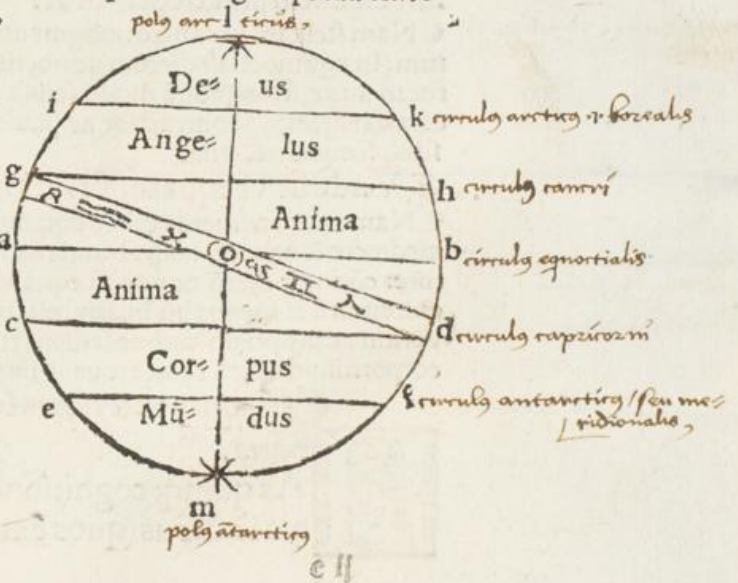 polꝯ arc l ticus,
De= us
i k circulꝯ arcticꝯ ⁊ borealis
Ange= lus
g h circulꝯ cancri
Anima
a b circulꝯ equoctialis
(O) ♋ ♊
Anima
c d circulꝯ capricorni
Cor= pus
e f circulꝯ antarcticꝯ / seu me=
ridionalis,
Mū= dus
m
polꝯ ātarcticꝯ
c ij